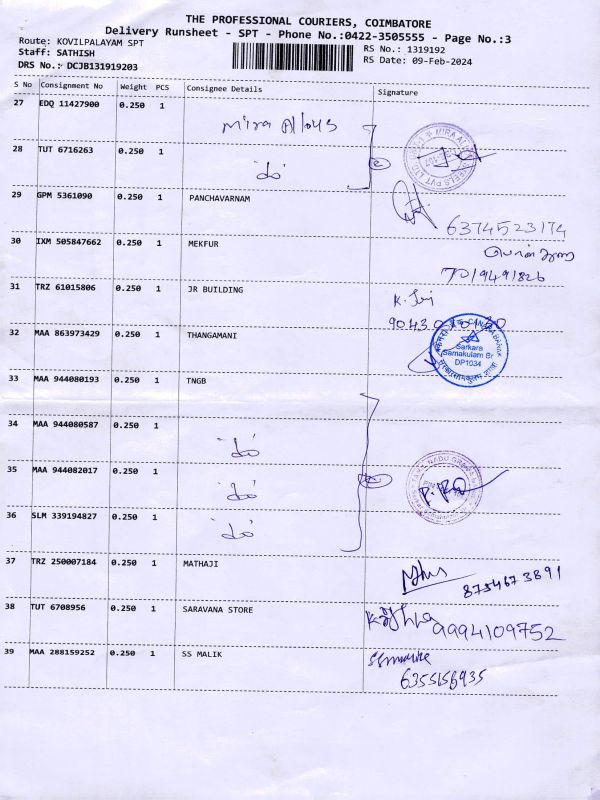 THE PROFESSIONAL COURIERS, COIMBATORE
Delivery Runsheet - SPT - Phone No.:0422-3505555 - Page No.:3
Route: KOVILPALAYAM SPT
RS No.: 1319192
Staff: SATHISH
RS Date: 09-Feb-2024
DRS No.: DCJB131919203
S No Consignment No Weight PCS Consignee Details Signature
27 EDQ 11427900 0.250 1 Mira Alloys
28 TUT 6716263 0.250 1 do
29 GPM 5361090 0.250 1 PANCHAVARNAM
6374523174
30 IXM 505847662 0.250 1 MEKFUR
7019491826
31 TRZ 61015806 0.250 1 JR BUILDING
32 MAA 863973429 0.250 1 THANGAMANI
Sarkara
Samakulam Br
DP1034
33 MAA 944080193 0.250 1 TNGB
34 MAA 944080587 0.250 1 do
35 MAA 944082017 0.250 1 do
36 SLM 339194827 0.250 1 do
37 TRZ 250007184 0.250 1 MATHAJI
8754673891
38 TUT 6708956 0.250 1 SARAVANA STORE
9994109752
39 MAA 288159252 0.250 1 SS MALIK
6355156935